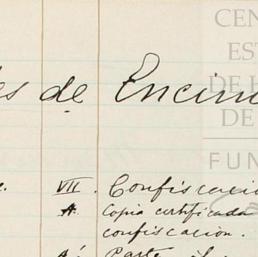 CEN
EST
DE H
DE
FUN
es de Encin
VII. Confiscació
A. Copia certificada
confiscacion.
Parte